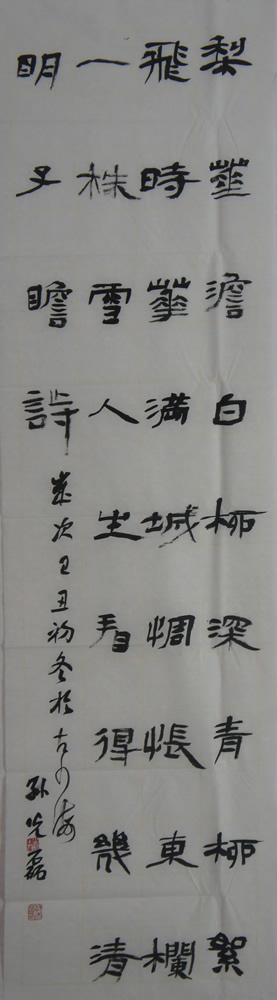 梨華澹白柳深青柳絮
飛時華滿城惆悵東欄
一株雪人生看得幾清
明子瞻詩
歲次己丑初冬於古
孫磊